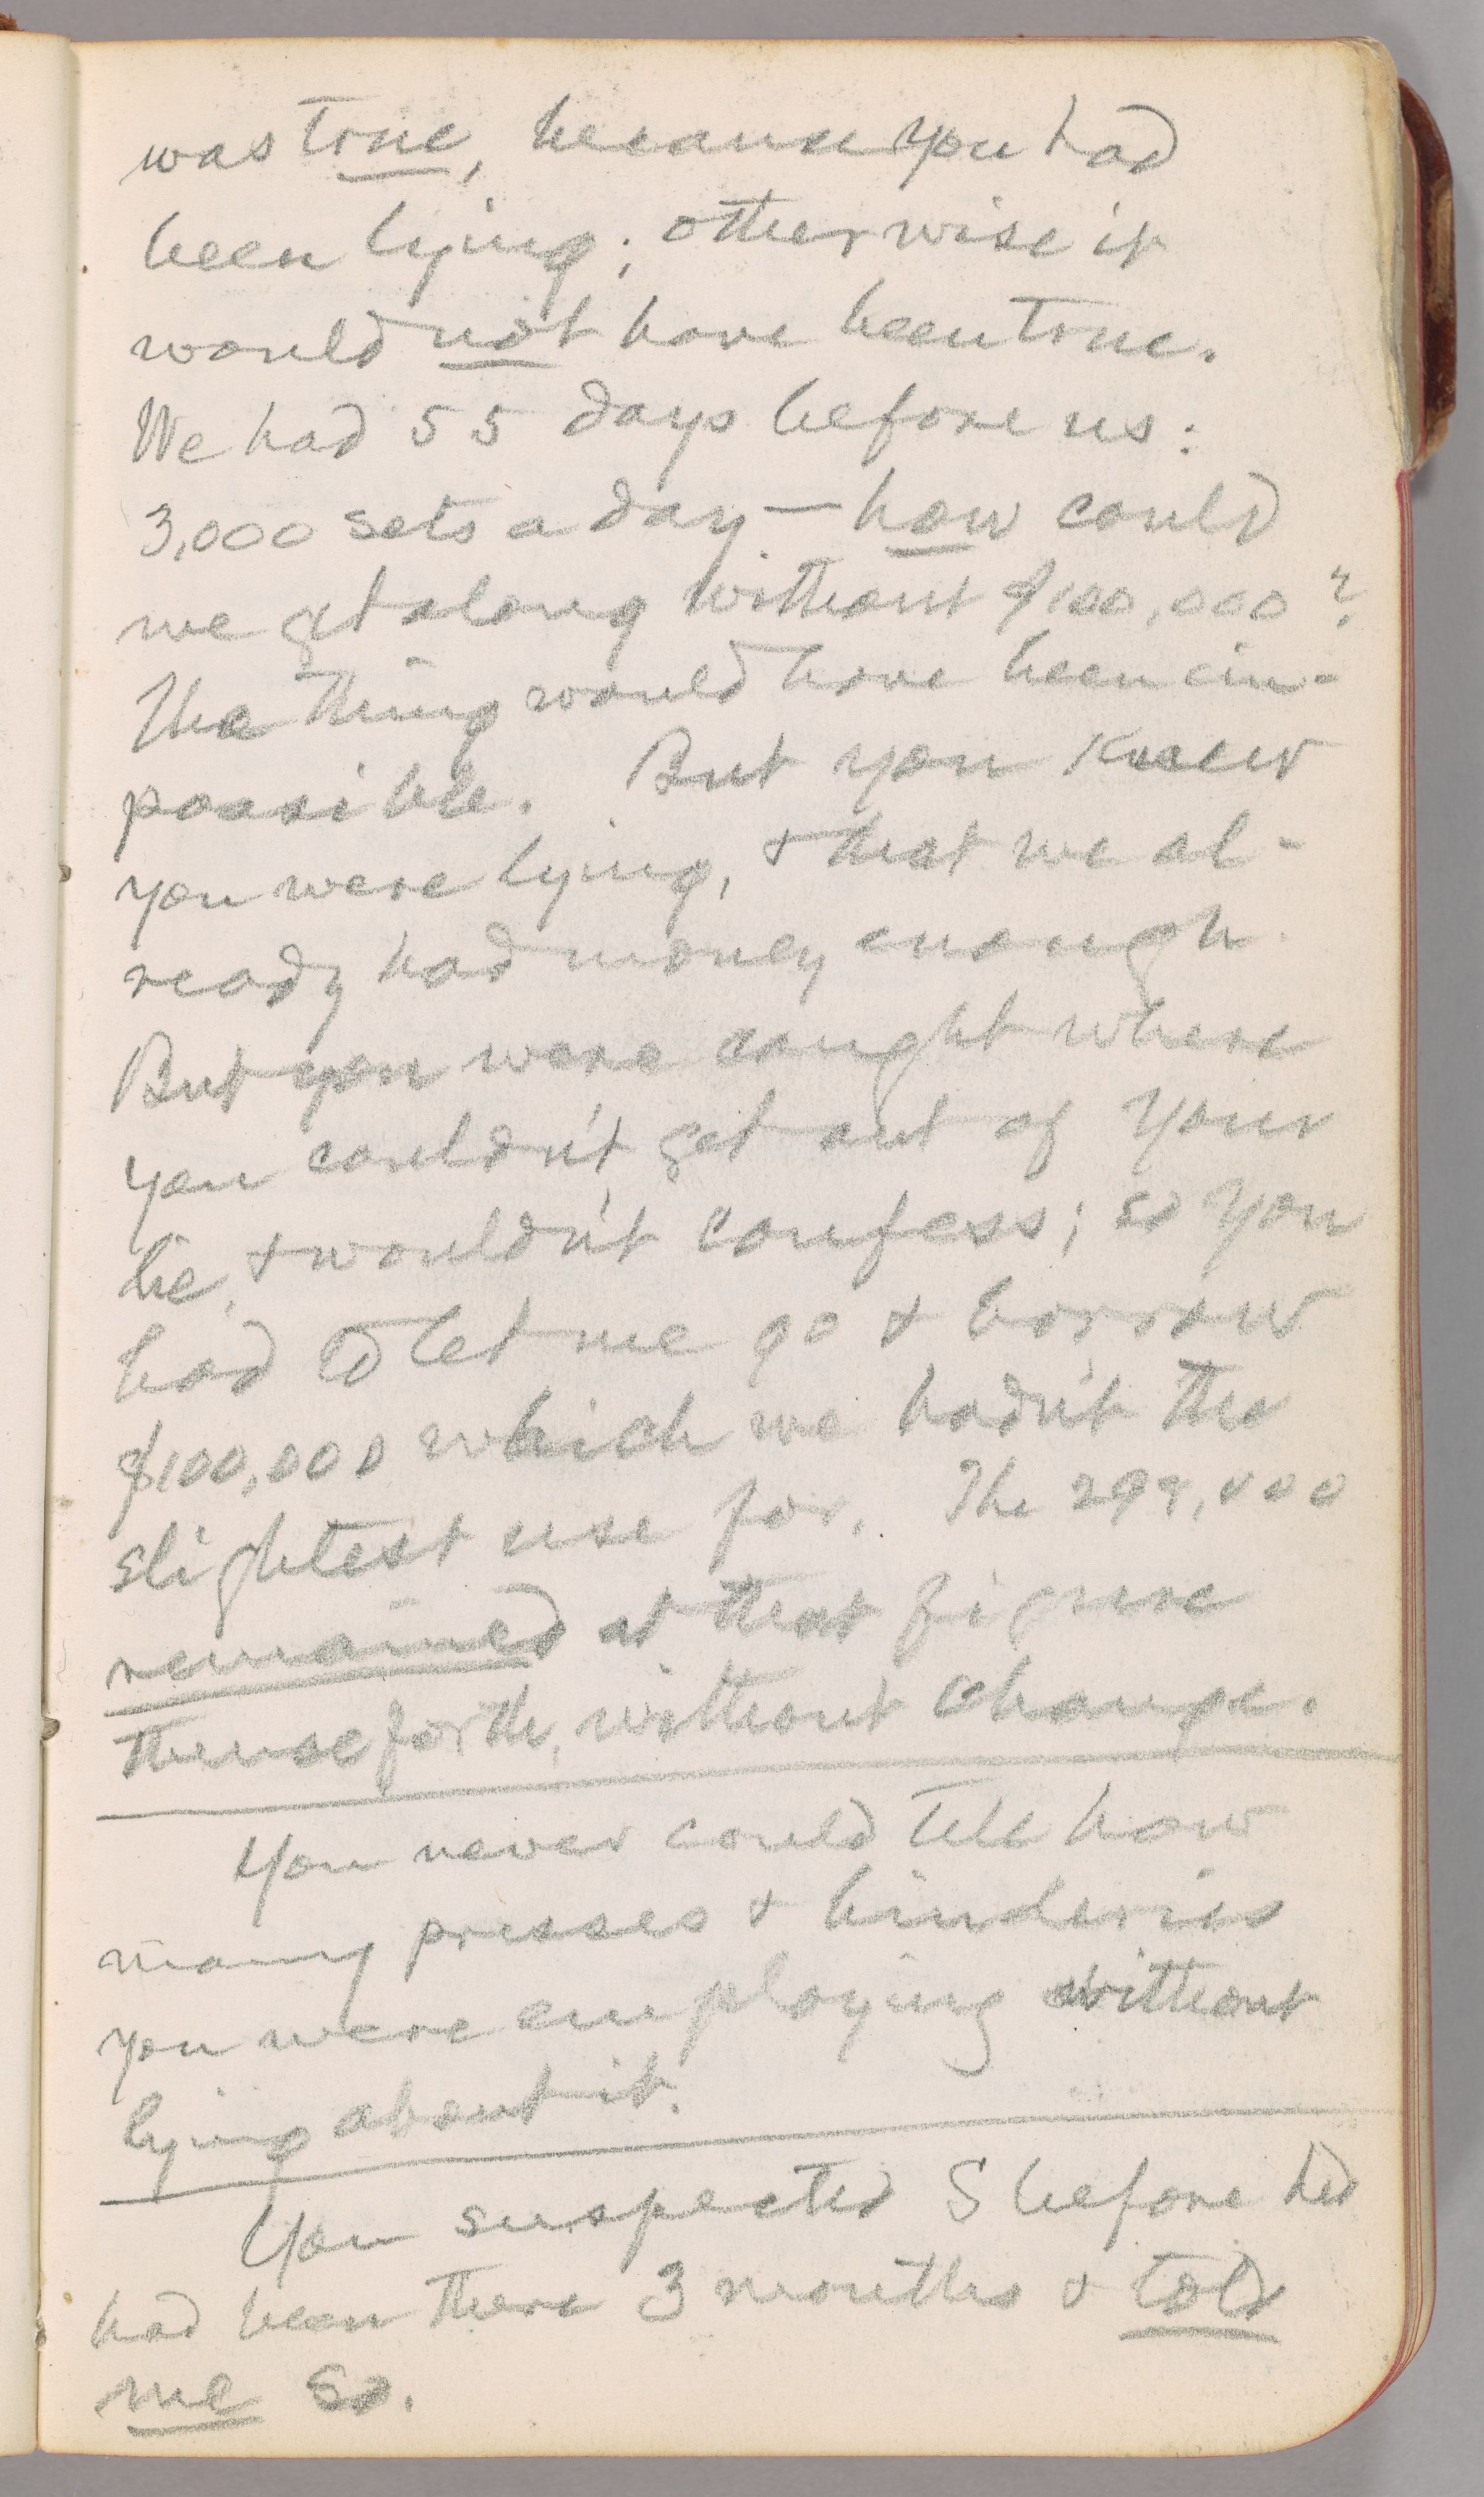 was true, because you had
been lying; otherwise it
would not have been true.
We had 55 days before us:
3,000 sets a day — how could
we get along without $100,000?
The thing would have been im-
possible. But you knew
you were lying, & that we al-
ready had money enough.
But you were caught where
you couldn't get out of your
lie, & wouldn't confess; so you
had to let me go & borrow
$100,000 which we hadn't the
slightest use for. The 299,000
remained at that figure
thenceforth, without change.
You never could tell how
many presses & binderies
you were employing without
lying about it.
You suspected S before he
had been there 3 months & told
me so.